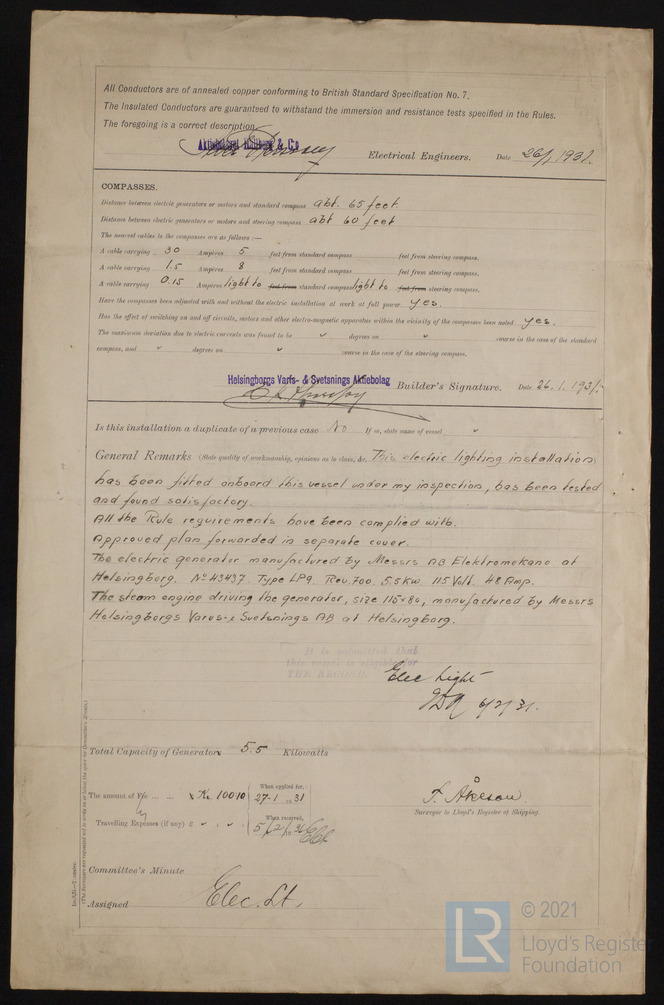 All Conductors are of annealed copper conforming to British Standard Specification No. 7.
The Insulated Conductors are guaranteed to withstand the immersion and resistance tests specified in the Rules.
The foregoing is a correct description.
Aktiebolaget & Co
Electrical Engineers. Date 26/1 1931.
COMPASSES.
Distance between electric generators or motors and standard compass abt. 65 feet
Distance between electric generators or motors and steering compass abt 60 feet
The nearest cables to the compasses are as follows:—
A cable carrying 30 Ampères 5 feet from standard compass feet from steering compass.
A cable carrying 1.5 Ampères 8 feet from standard compass feet from steering compass.
A cable carrying 0.15 Ampères light to feet from standard compass light to feet from steering compass.
Have the compasses been adjusted with and without the electric installation at work at full power yes.
Has the effect of switching on and off circuits, motors and other electro-magnetic apparatus within the vicinity of the compasses been noted yes.
The maximum deviation due to electric currents was found to be degrees on course in the case of the standard
compass, and degrees on course in the case of the steering compass.
Helsingborgs Varfs- & Svetsnings Aktiebolag Builder's Signature. Date 26.1.1931.
Is this installation a duplicate of a previous case No If so, state name of vessel
General Remarks (State quality of workmanship, opinions as to class, &c. This electric lighting installation
has been fitted onboard this vessel under my inspection, has been tested
and found satisfactory.
All the Rule requirements have been complied with.
Approved plan forwarded in separate cover.
The electric generator manufactured by Messrs AB Elektromekano at
Helsingborg. No 43437. Type LP9. Rev. 700. 5.5 kw. 115 Volt. 48 Amp.
The steam engine driving the generator, size 115×80, manufactured by Messrs
Helsingborgs Varvs- & Svetsnings AB at Helsingborg.
It is submitted that
this vessel is eligible for
THE RECORD
Elec Light
6/2/31.
Total Capacity of Generators 5.5 Kilowatts
The amount of Fee Kr. 100.10
When applied for,
27-1 1931
Travelling Expenses (if any) £
When received,
5/2/31
F. Åkeson
Surveyor to Lloyd's Register of Shipping.
Committee's Minute
Assigned Elec. Lt.
© 2021
LR
Lloyd's Register
Foundation